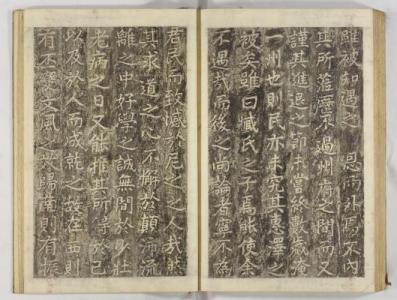 雖被知遇之恩而外焉不內
其所薀應不過州府之間而又
謹其進退之節未嘗終數歲淹
一州也則民亦未究其惠澤之
被矣雖曰臧氏之子焉能使余
不遇哉而後之尚論者寧不為
君民而致憾於尼之之人哉然
其求道之心不懈於顛沛流
離之中好學之誠無間於少壯
老病之日又能推其所得於己
以及於人而成就之故在西則
有丕變文風之陽南則有振